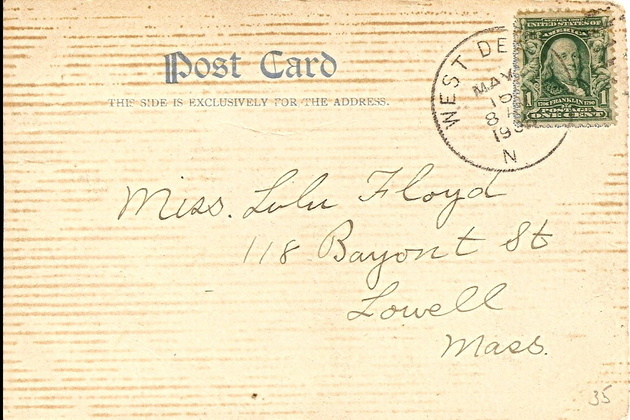 Post Card
THIS SIDE IS EXCLUSIVELY FOR THE ADDRESS.
WEST DE
MAY
8
19
N
SERIES 1902
UNITED STATES OF
AMERICA
1 FRANKLIN 1
POSTAGE
ONE CENT
Miss. Lulu Floyd
118 Bayont St
Lowell
Mass.
35